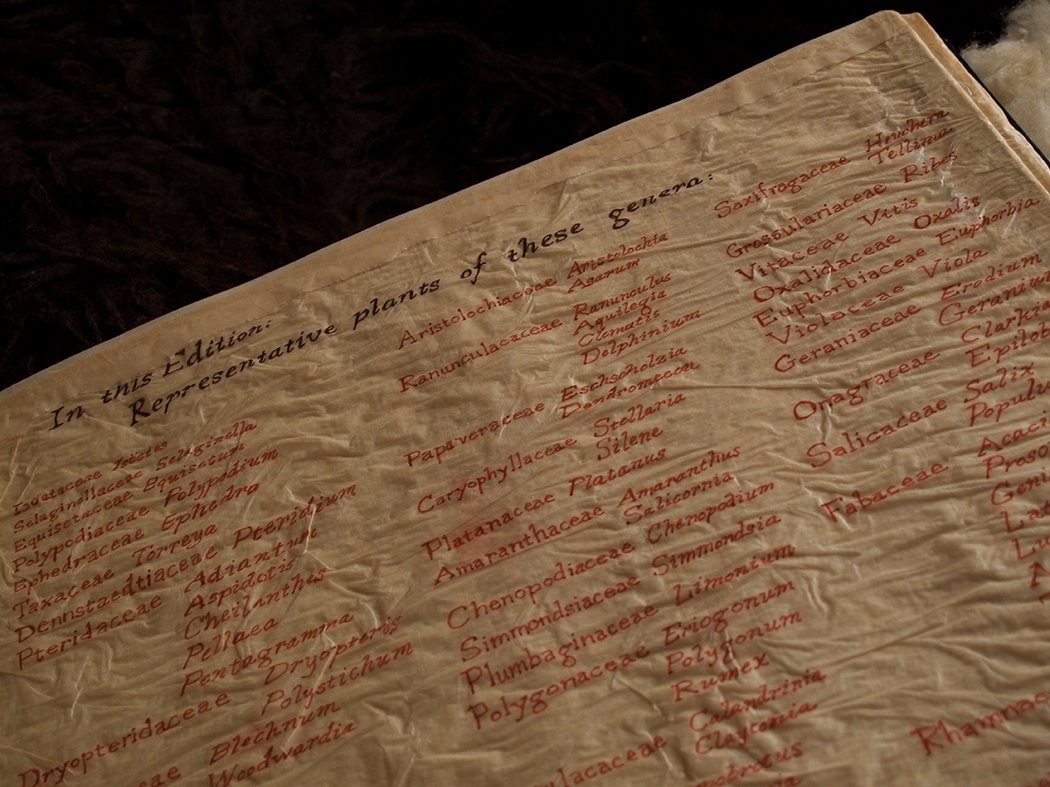 In this Edition:
Representative plants of these genera:
Isoetaceae Isoetes
Selaginellaceae Selaginella
Equisetaceae Equisetum
Polypodiaceae Polypodium
Ephedraceae Ephedra
Taxaceae Torreya
Dennstaedtiaceae Pteridium
Pteridaceae Adiantum
Aspidotis
Cheilanthes
Pellaea
Pentagramma
Dryopteridaceae Dryopteris
Polystichum
Blechnum
Woodwardia
Aristolochiaceae Aristolochia
Asarum
Ranunculaceae Ranunculus
Aquilegia
Clematis
Delphinium
Papaveraceae Eschscholzia
Dendromecon
Caryophyllaceae Stellaria
Silene
Platanaceae Platanus
Amaranthaceae Amaranthus
Salicornia
Chenopodiaceae Chenopodium
Simmondsiaceae Simmondsia
Plumbaginaceae Limonium
Polygonaceae Eriogonum
Polygonum
Rumex
Calandrinia
Claytonia
Saxifragaceae Heuchera
Tellima
Grossulariaceae Ribes
Vitaceae Vitis
Oxalidaceae Oxalis
Euphorbiaceae Euphorbia
Violaceae Viola
Geraniaceae Erodium
Geranium
Onagraceae Clarkia
Salicaceae Salix
Fabaceae